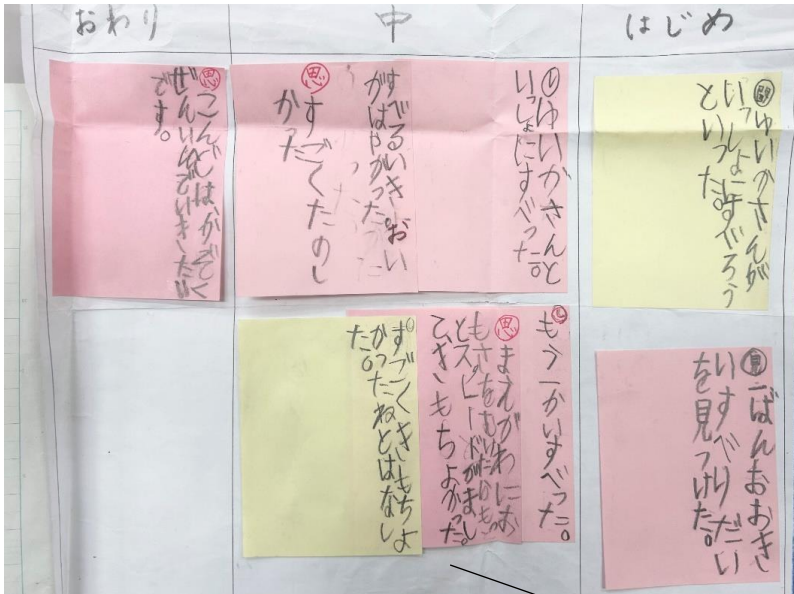 はじめ
聞 ゆいかさんが
いっしょにすべろう
といった。
見 一ばんおおき
いすべりだい
を見つけた。
中
し ゆいがさんと
いっしょにすべった。
すべるいきおい
がはやかった。
思 すごくたのし
かった
し もう一かいすべった。
思 まえがわにお
もさをむけたらもっ
とスピードがまし
てきもちよかった。
すごくきもちよ
かったねとはなし
た。
おわり
思 こんどは、かぞく
ぜんいんでいきたい
です。